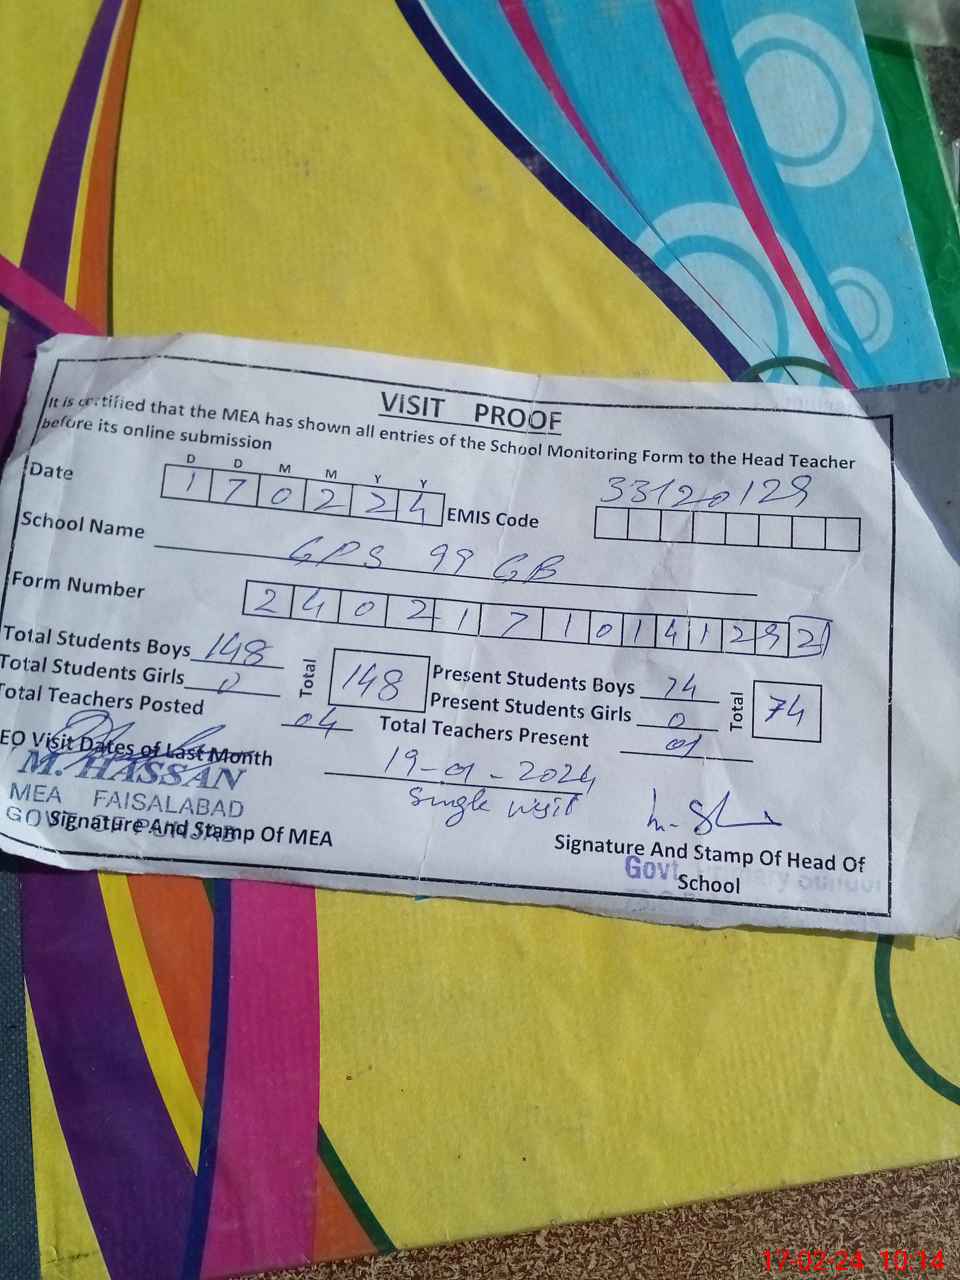 VISIT PROOF
It is certified that the MEA has shown all entries of the School Monitoring Form to the Head Teacher
before its online submission
D D M M Y Y
Date 1 7 0 2 2 4 EMIS Code 33120129
School Name GPS 99 GB
Form Number 2 4 0 2 1 7 1 0 1 4 1 2 9 2
Total Students Boys 148 Total 148 Present Students Boys 74 Total 74
Total Students Girls 0 Present Students Girls 0
Total Teachers Posted 04 Total Teachers Present 01
EO Visit Dates of Last Month 19-01-2024
Single visit
M. HASSAN
MEA FAISALABAD
GOVT. OF PUNJAB
Signature And Stamp Of MEA
Signature And Stamp Of Head Of
School
Govt. Primary School
17-02-24 10:14